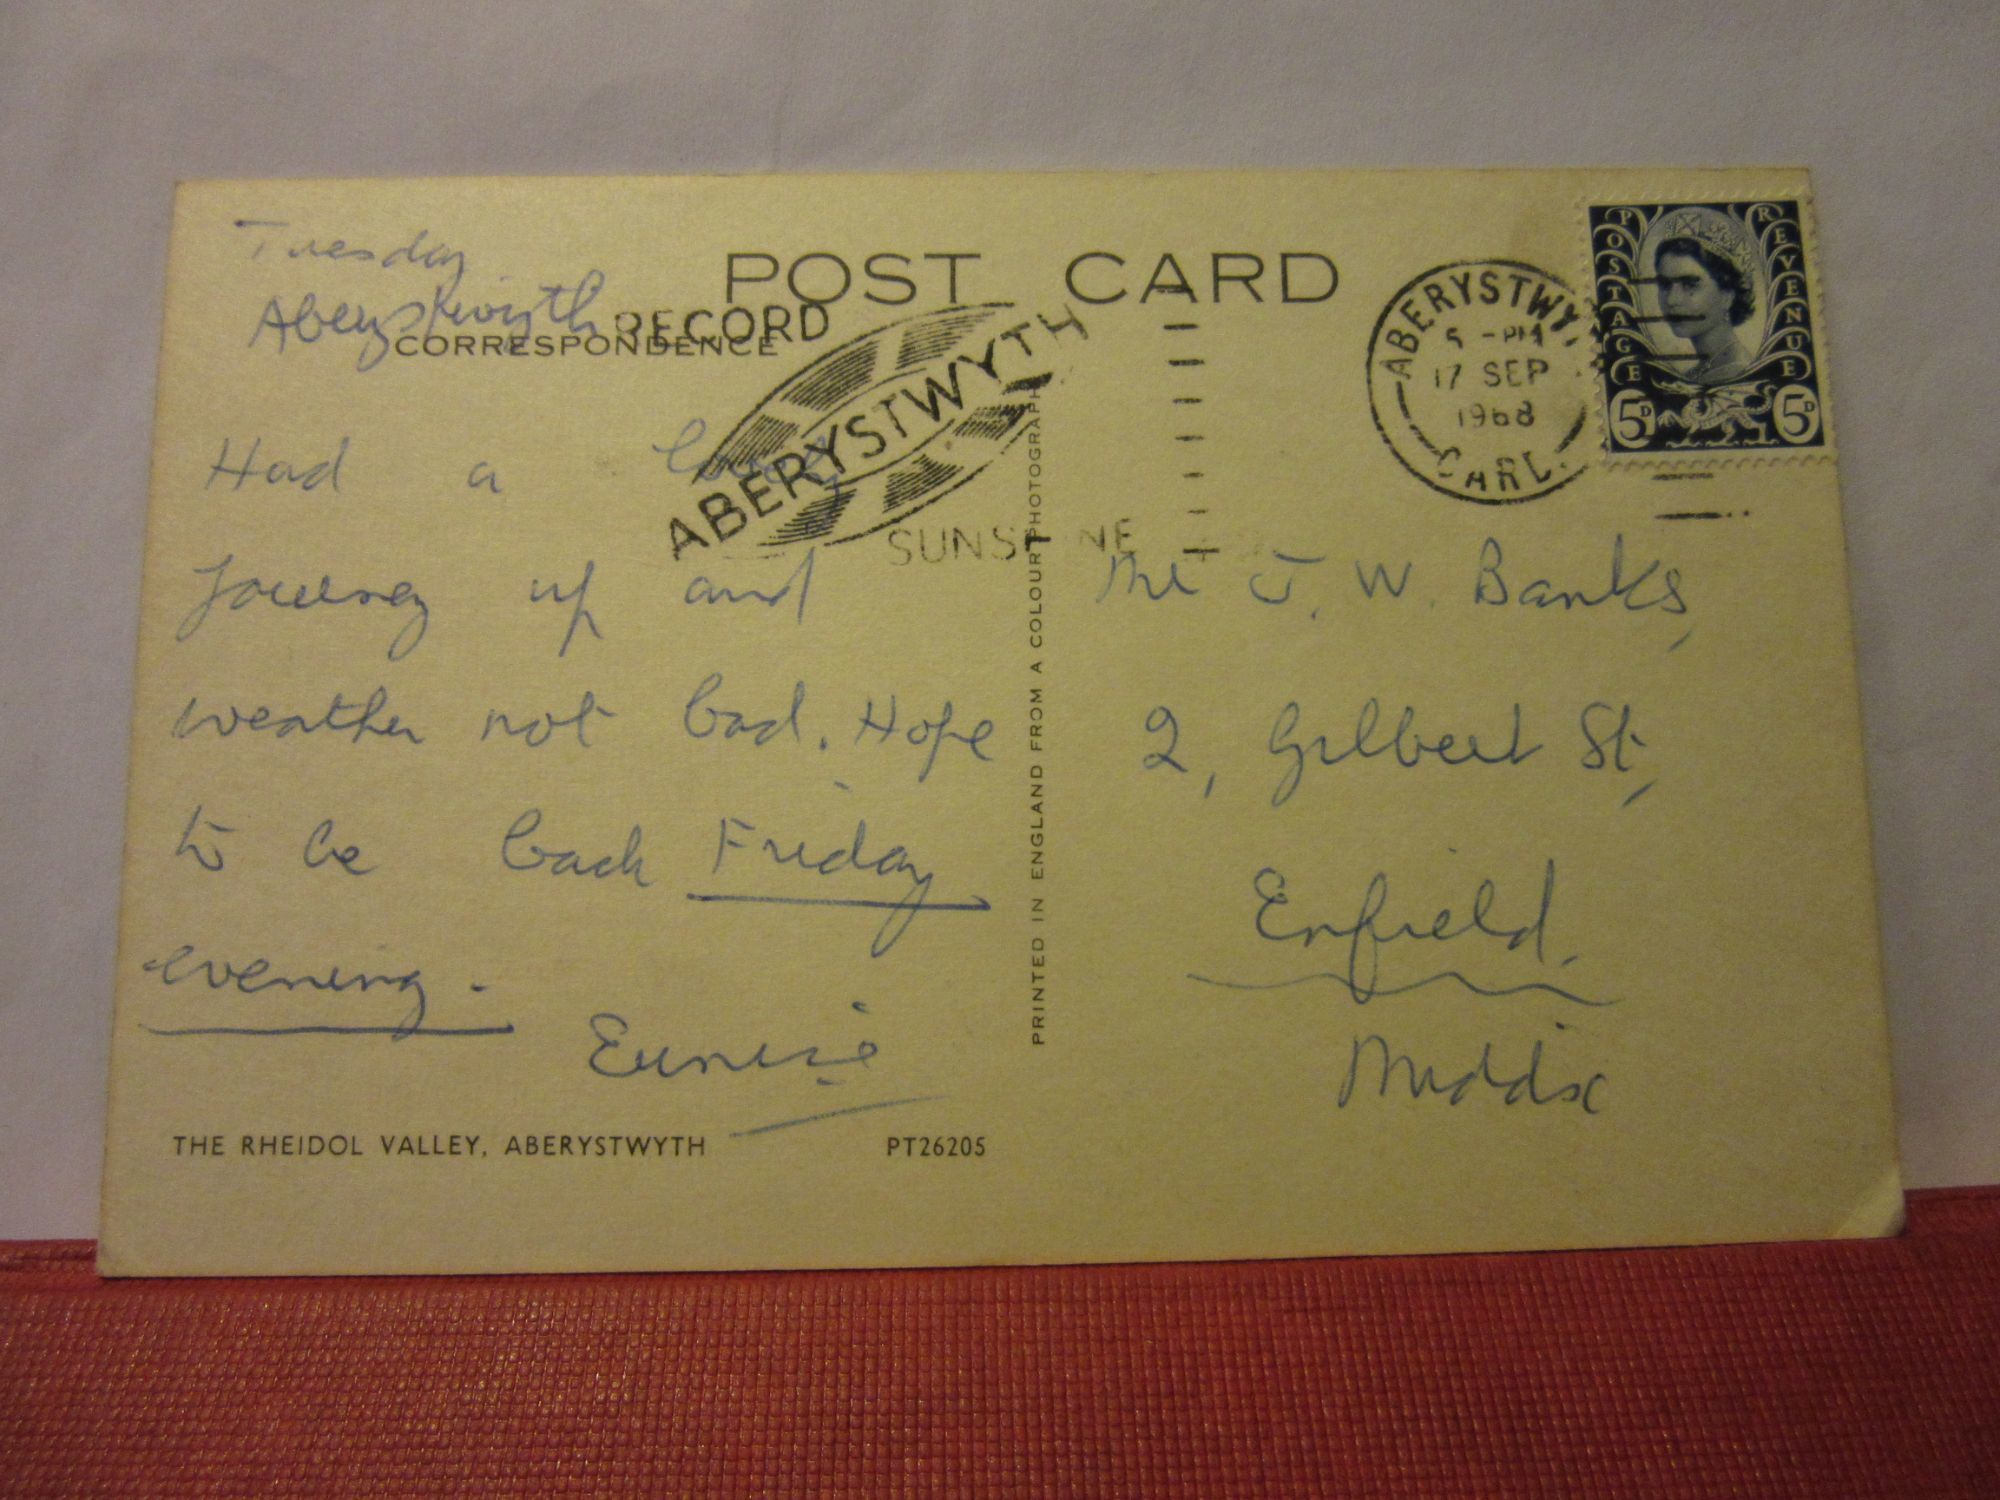 Tuesday
Aberystwyth
POST CARD
RECORD
CORRESPONDENCE
ABERYSTWYTH
SUNSHINE
ABERYSTWYTH
5 - PM
17 SEP
1968
CARD.
POSTAGE REVENUE
5D 5D
Had a
Journey up and
weather not bad. Hope
to be back Friday
evening.
Eunice
THE RHEIDOL VALLEY, ABERYSTWYTH PT26205
PRINTED IN ENGLAND FROM A COLOUR PHOTOGRAPH
J. W. Banks,
2, Gilbert St,
Enfield,
Middx